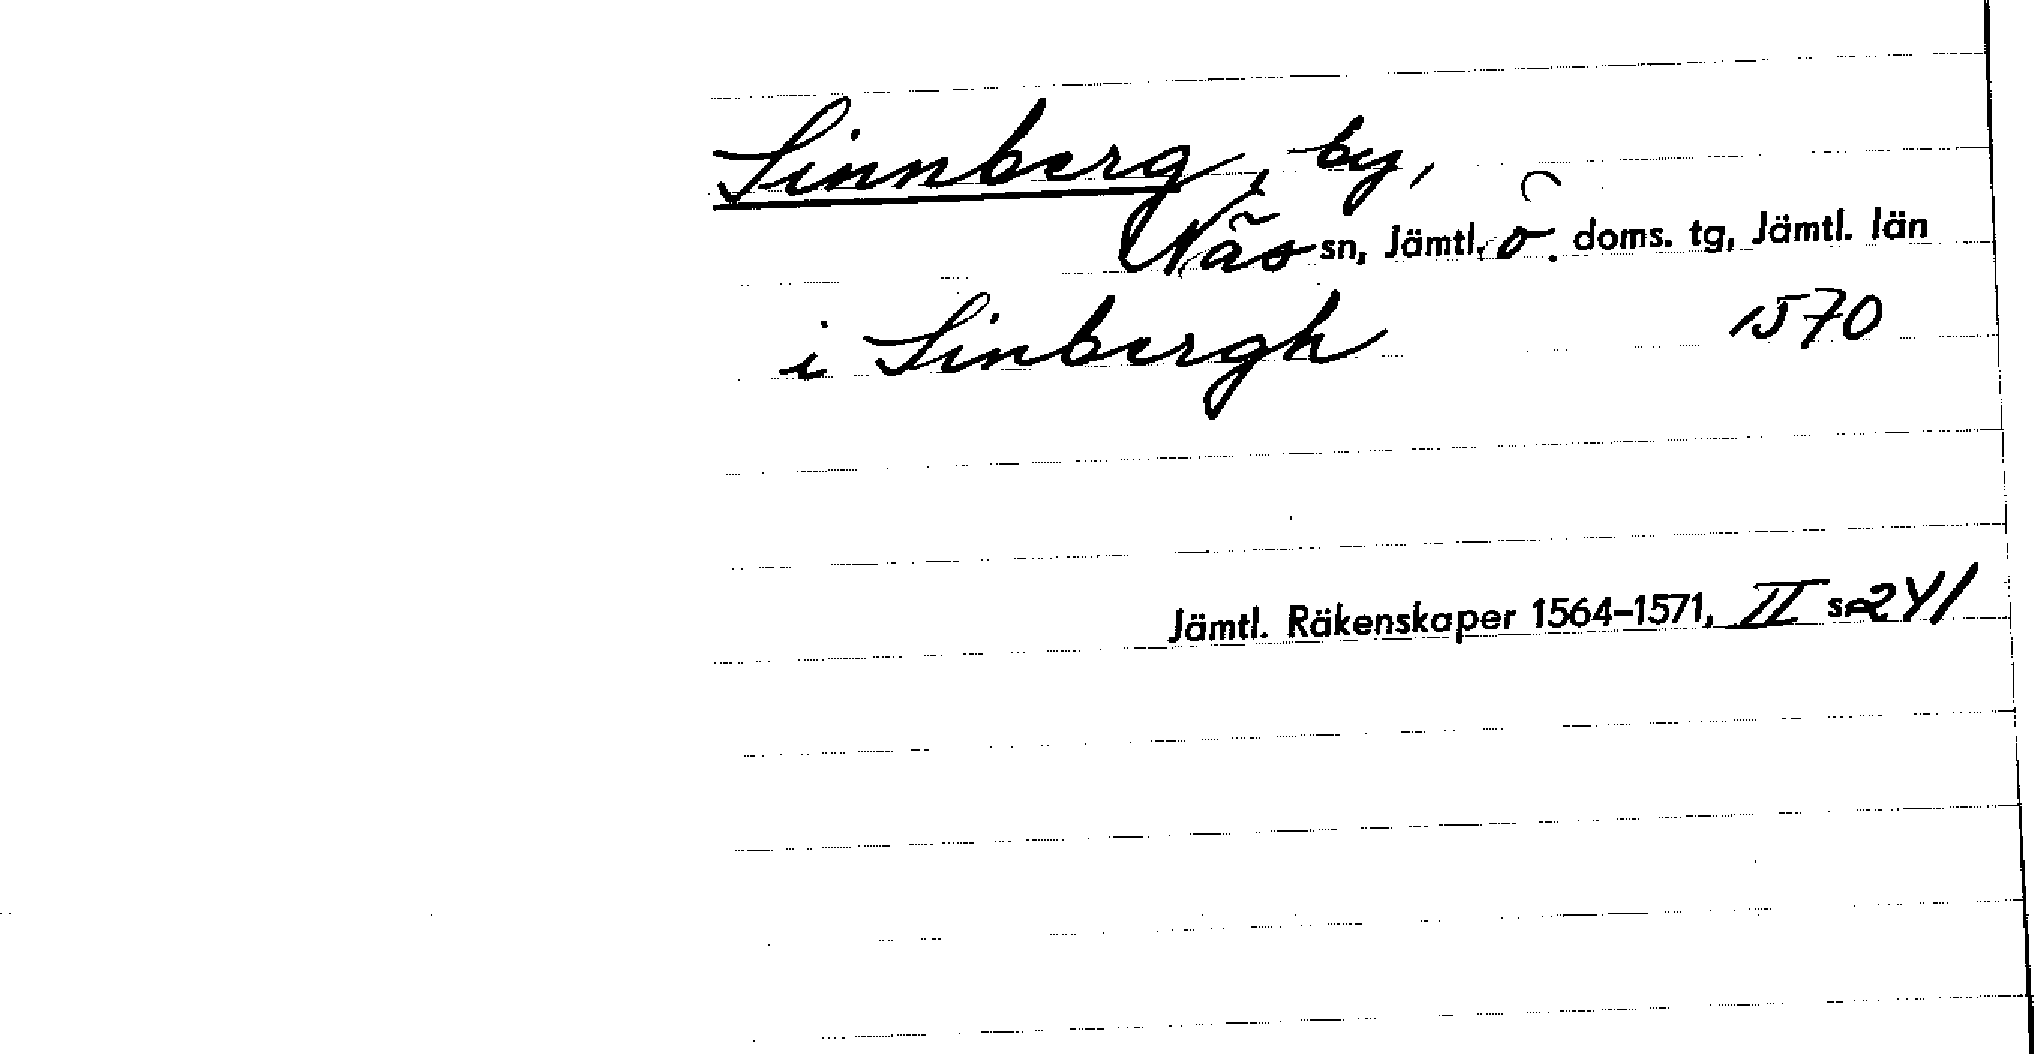 Sinnberg, by,
Näs sn, Jämtl. ö. doms. tg, Jämtl. län
i Sinbergh 1570
Jämtl. Räkenskaper 1564–1571, II s. 241